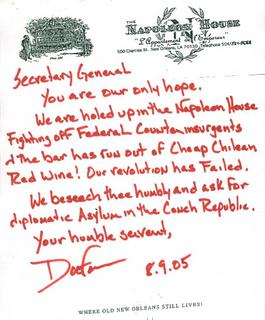 THE
NAPOLEON HOUSE
500 Chartres St. New Orleans, LA 70130 Telephone 504/
Secretary General
You are our only hope.
We are holed up in the Napoleon House
Fighting off Federal Counterinsurgents
& The bar has run out of Cheap Chilean
Red Wine! Our revolution has Failed.
We beseech thee humbly and ask for
diplomatic Asylum in the Conch Republic.
Your humble servent,
8.9.05
WHERE OLD NEW ORLEANS STILL LIVES!